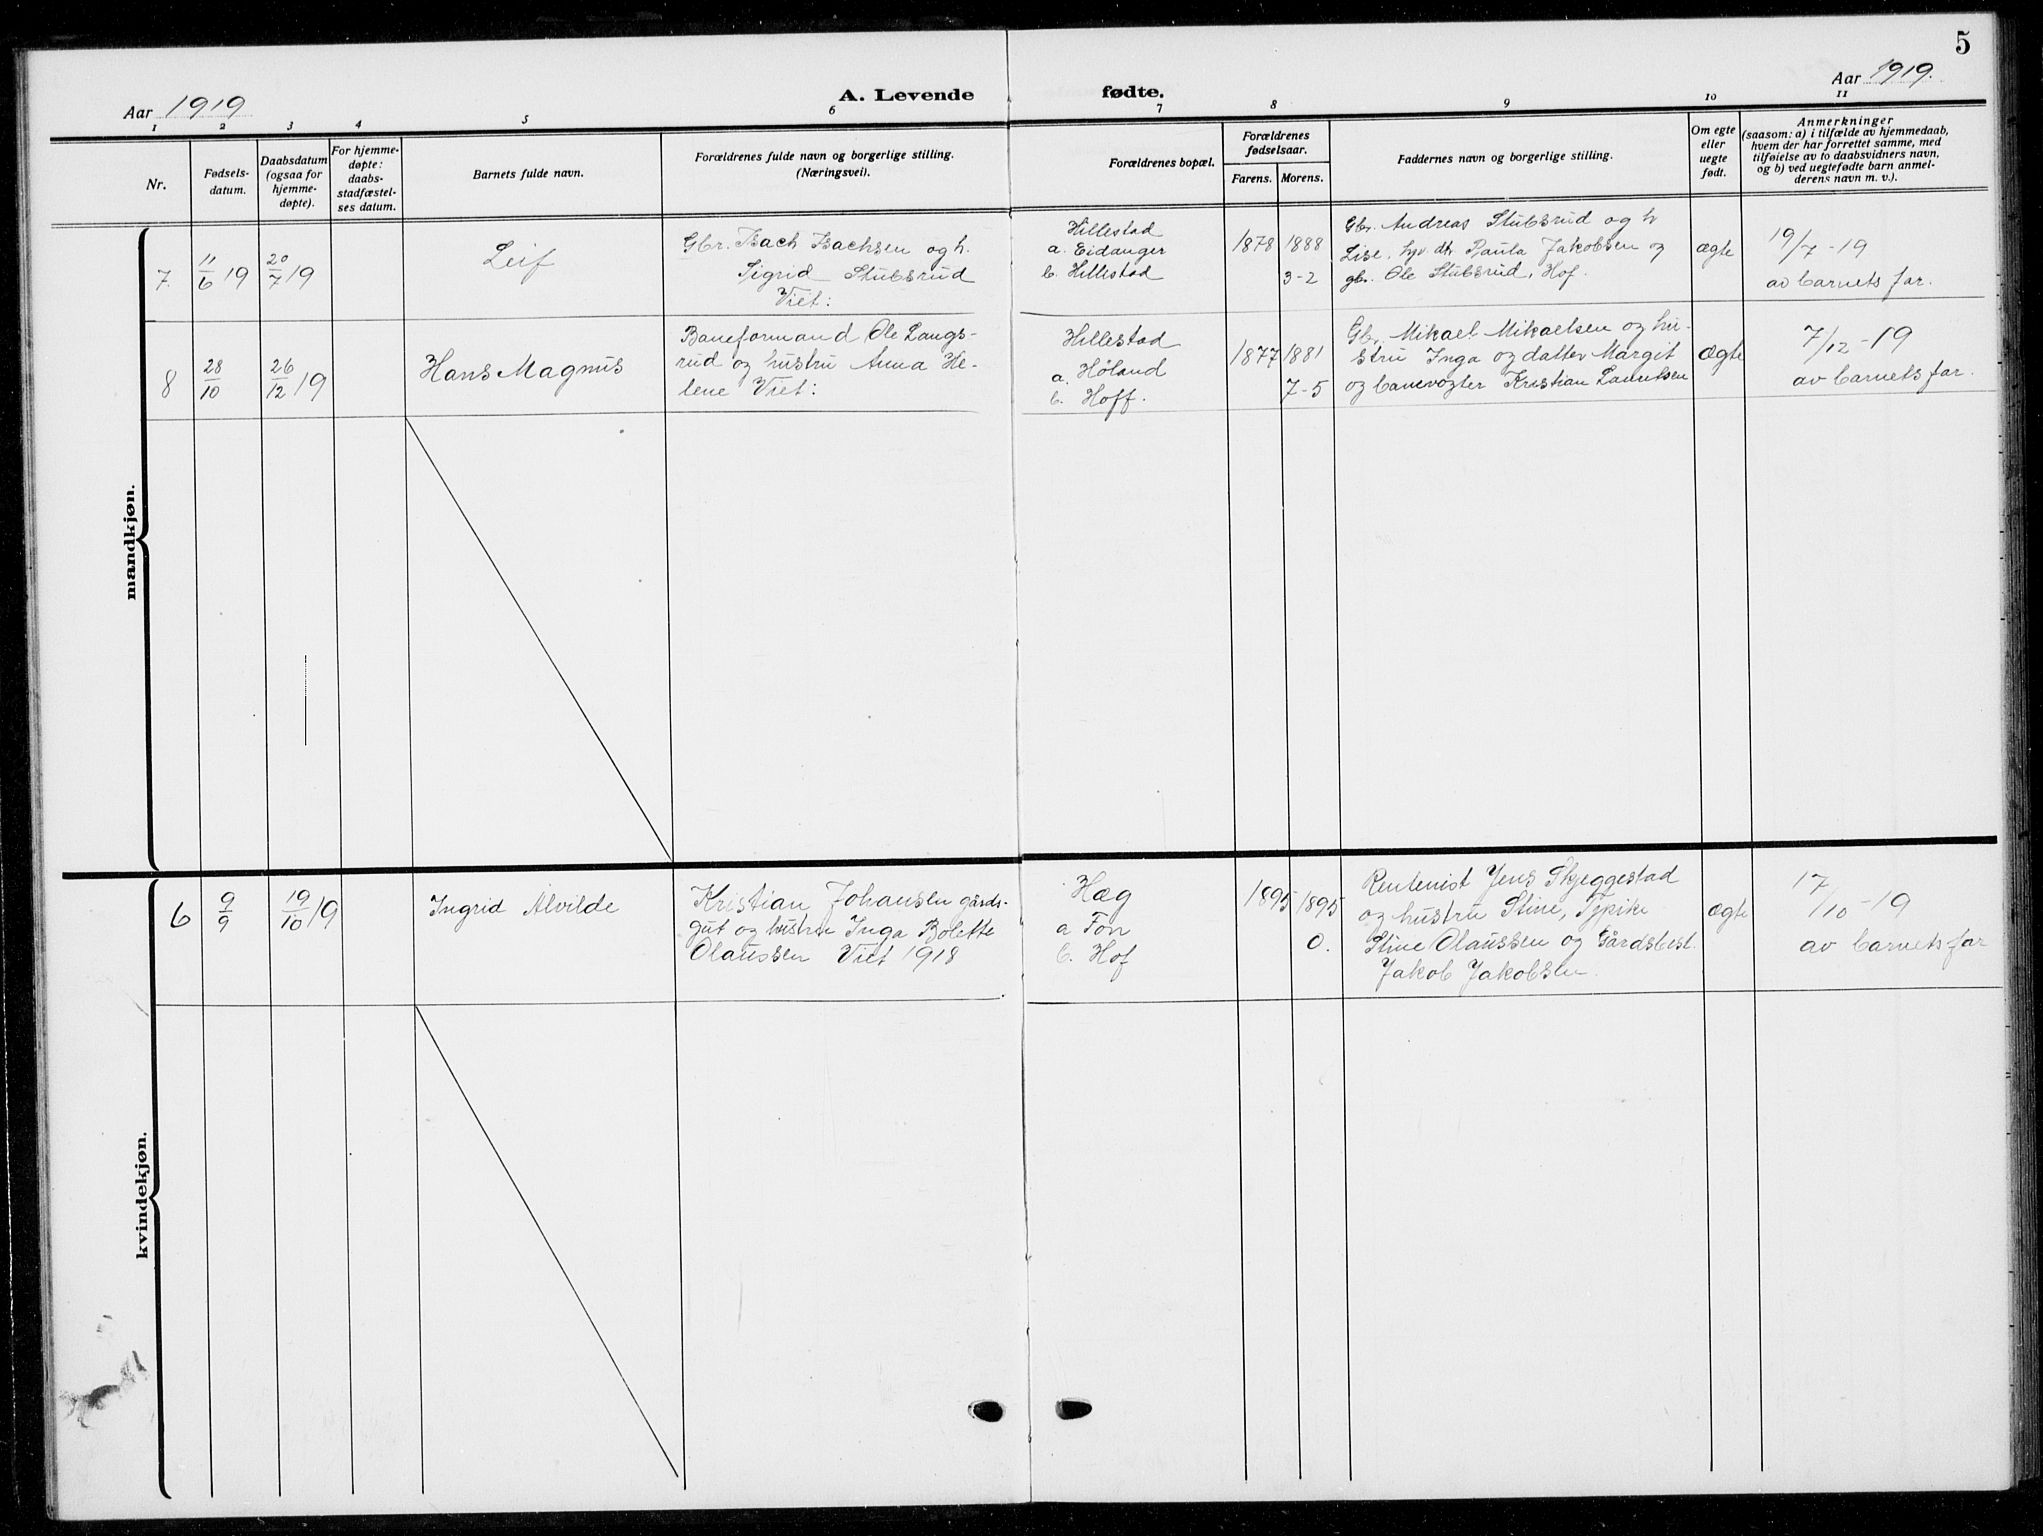 5
Aar 1919
A. Levende fødte.
Aar 1919.
1 2 3 4 5 6 7 8 9 10 11
Nr.
Fødsels-
datum.
Daabsdatum
(ogsaa for
hjemme-
døpte).
For hjemme-
døpte:
daabs-
stadfæstel-
ses datum.
Barnets fulde navn.
Forældrenes fulde navn og borgerlige stilling.
(Næringsvei).
Forældrenes bopæl.
Forældrenes
fødselsaar.
Farens. Morens.
Faddernes navn og borgerlige stilling.
Om egte
eller
uegte
født.
Anmerkninger
(saasom: a) i tilfælde av hjemmedaab,
hvem der har forrettet samme, med
tilføielse av to daabsvidners navn,
og b) ved uegtefødte barn anmel-
derens navn m. v.).
mandkjøn.
7.
11/6 19
20/7 19
Leif
Gbr. Isach Isachsen og h.
Sigrid Stubsrud
Viet:
Hillestad
a. Eidanger
b. Hillestad
1878
1888
3-2
Gbr. Andreas Stubsrud og h
Lise, Paula Jakobsen og
gbr. Ole Stubsrud, Hof.
ægte
19/7-19
av barnets far.
8
28/10
26/12 19
Hans Magnus
Baneformand Ole Langs-
rud og hustru Anna He-
lene Viet:
Hillestad
a. Høland
b. Hoff.
1877
1881
7-5
Gbr. Mikael Mikaelsen og hu-
stru Inga og datter Margit
og banevogter Kristian Lauritsen
ægte
7/12-19
av barnets far.
kvindekjøn.
6
9/9
19/10 19
Ingrid Alvilde
Kristian Johansen gårds-
gut og hustru Inga Bolette
Olaussen Viet 1918
Hæg
a Fon
b. Hof
1895
1895
0.
Rentenist Jens Skjeggestad
og hustru Stine, Tjpike
Stine Olaussen og Gårdsbest.
Jakob Jakobsen.
ægte
17/10-19
av barnets far